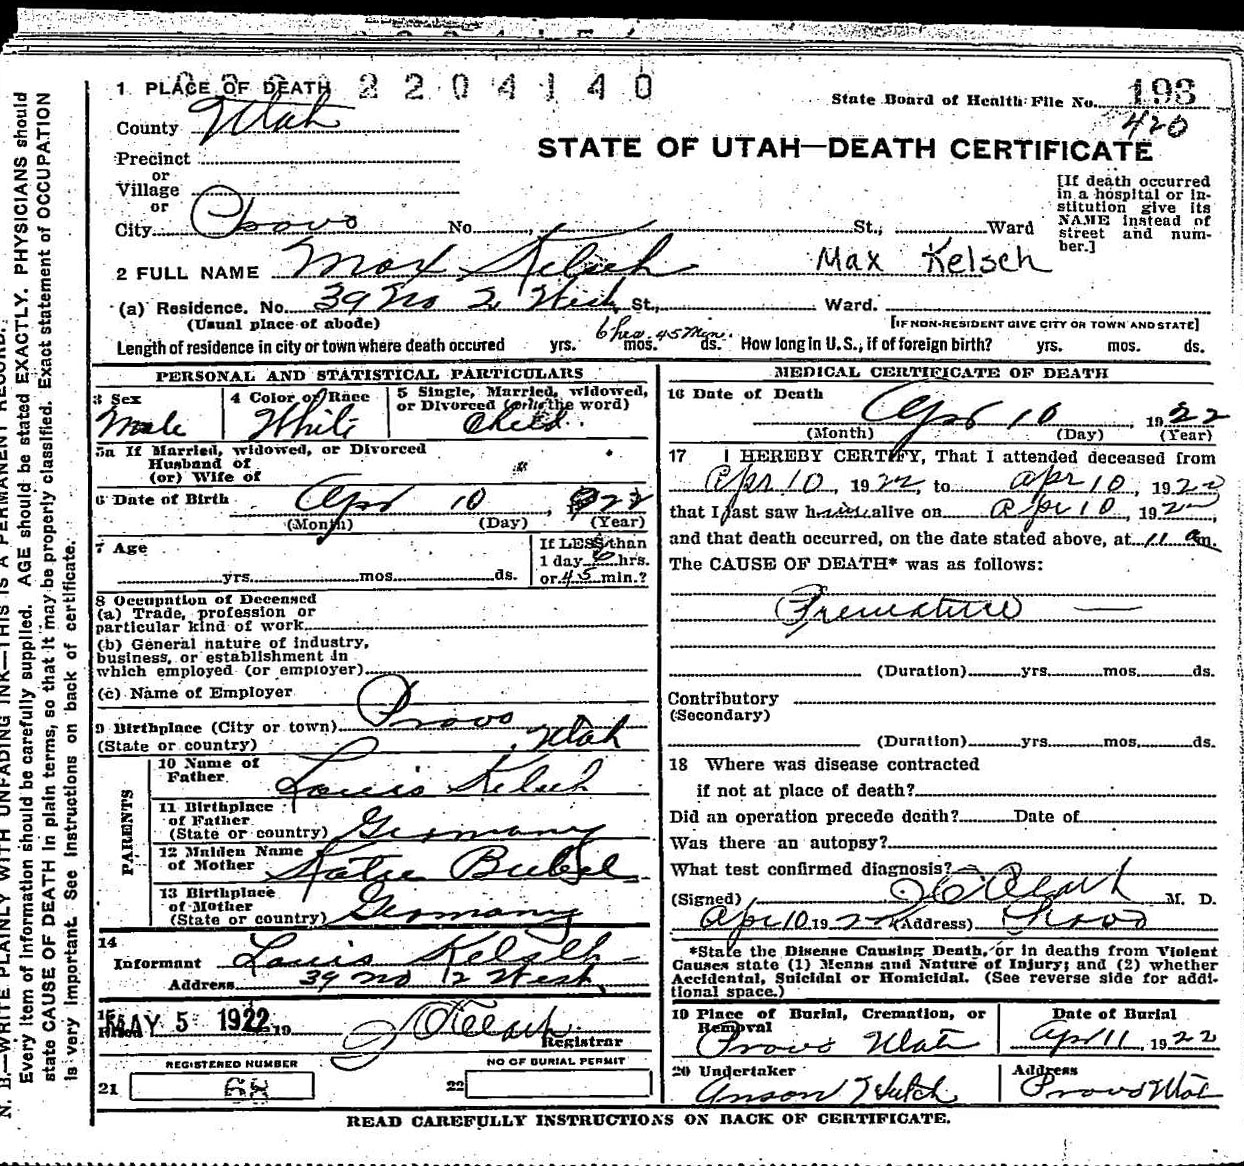 N. B.—WRITE PLAINLY WITH UNFADING INK—THIS IS A PERMANENT RECORD.
Every item of information should be carefully supplied. AGE should be stated EXACTLY. PHYSICIANS should
state CAUSE OF DEATH in plain terms, so that it may be properly classified. Exact statement of OCCUPATION
is very important. See instructions on back of certificate.
2204140
1 PLACE OF DEATH
State Board of Health File No. 193
420
County Utah
STATE OF UTAH—DEATH CERTIFICATE
Precinct
or
Village
or
City Provo No. St., Ward
[If death occurred
in a hospital or in-
stitution give its
NAME instead of
street and num-
ber.]
2 FULL NAME Max Kelsch Max Kelsch
(a) Residence. No. 39 No 2 West St., Ward.
(Usual place of abode) [IF NON-RESIDENT GIVE CITY OR TOWN AND STATE]
6 hrs. 45 Min.
Length of residence in city or town where death occured yrs. mos. ds. How long in U. S., if of foreign birth? yrs. mos. ds.
PERSONAL AND STATISTICAL PARTICULARS
3 Sex 4 Color or Race 5 Single, Married, widowed,
or Divorced (write the word)
Male White Child
5a If Married, widowed, or Divorced
Husband of
(or) Wife of
6 Date of Birth Apr 10, 1922
(Month) (Day) (Year)
7 Age
yrs. mos. ds.
If LESS than
1 day 6 hrs.
or 45 min.?
8 Occupation of Deceased
(a) Trade, profession or
particular kind of work
(b) General nature of industry,
business, or establishment in
which employed (or employer)
(c) Name of Employer
9 Birthplace (City or town) Provo
(State or country) Utah
PARENTS
10 Name of
Father Louis Kelsch
11 Birthplace
of Father
(State or country) Germany
12 Maiden Name
of Mother Katie
13 Birthplace
of Mother
(State or country) Germany
14
Informant Louis Kelsch
Address 39 No 2 West
15
Filed MAY 5 1922 19
Registrar
REGISTERED NUMBER NO OF BURIAL PERMIT
21 68 22
MEDICAL CERTIFICATE OF DEATH
16 Date of Death
Apr 10 1922
(Month) (Day) (Year)
17 I HEREBY CERTIFY, That I attended deceased from
Apr 10, 1922, to Apr 10, 1922
that I last saw him alive on Apr 10, 1922,
and that death occurred, on the date stated above, at 11 am.
The CAUSE OF DEATH* was as follows:
Premature
(Duration) yrs. mos. ds.
Contributory
(Secondary)
(Duration) yrs. mos. ds.
18 Where was disease contracted
if not at place of death?
Did an operation precede death? Date of
Was there an autopsy?
What test confirmed diagnosis?
(Signed) M. D.
Apr 10 1922 (Address) Provo
*State the Disease Causing Death, or in deaths from Violent
Causes state (1) Menns and Nature of Injury; and (2) whether
Accidental, Suicidal or Homicidal. (See reverse side for addi-
tional space.)
19 Place of Burial, Cremation, or
Removal
Date of Burial
Provo Utah Apr 11, 1922
20 Undertaker Address
Anson Hatch Provo Utah
READ CAREFULLY INSTRUCTIONS ON BACK OF CERTIFICATE.